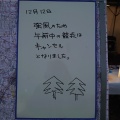 12月12日
強風のため
午前中の競売は
キャンセル
となりました。